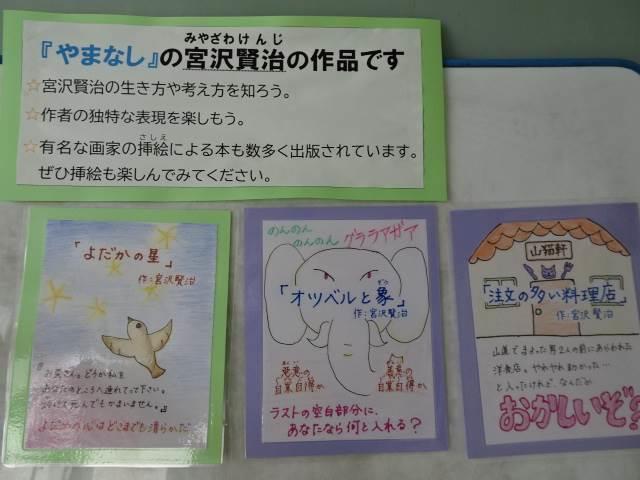 みやざわけんじ
『やまなし』の宮沢賢治の作品です
☆宮沢賢治の生き方や考え方を知ろう。
☆作者の独特な表現を楽しもう。
さしえ
☆有名な画家の挿絵による本も数多く出版されています。
ぜひ挿絵も楽しんでみてください。
「よだかの星」
作：宮沢賢治
『お日さん、どうか私を
あなたのところへ連れてって下さい。
やけて死んでもかまいません。』
よだかの心はどこまでも清らかだ
のんのん
のんのん
グララアガア
ぞう
「オツベルと象」
作：宮沢賢治
自業自得か
自業自得か
ラストの空白部分に、
あなたなら何と入れる？
山猫軒
「注文の多い料理店」
作：宮沢賢治
山奥でまよった男2人の前にあらわれた
洋食店。やれやれ助かった…
と入ったけれど、なんだか
おかしいぞ？